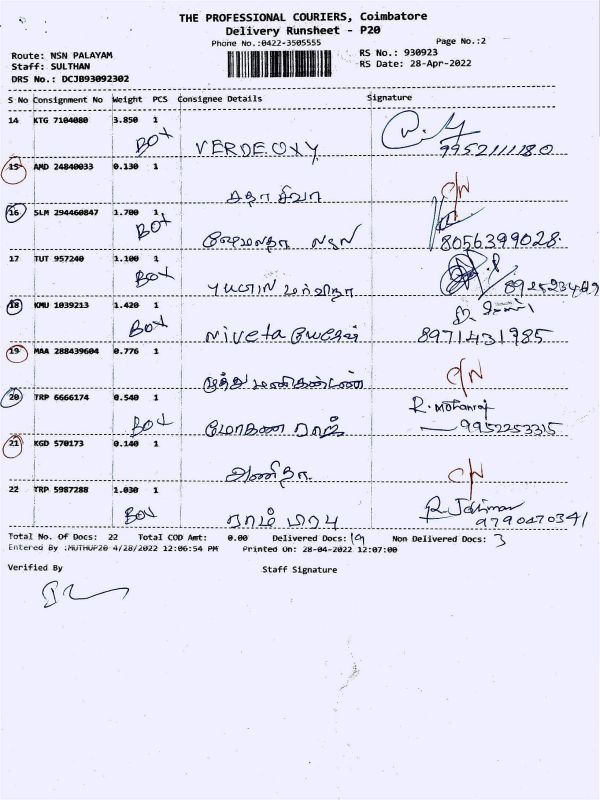 THE PROFESSIONAL COURIERS, Coimbatore
Delivery Runsheet - P20
Phone No.:0422-3505555 Page No.:2
Route: NSN PALAYAM RS No.: 930923
Staff: SULTHAN RS Date: 28-Apr-2022
DRS No.: DCJB93092302
S No Consignment No Weight PCS Consignee Details Signature
14 KTG 7104080 3.850 1
BOX VERDEOXY 9952111180
15 AMD 24840033 0.130 1
சதாசிவா C/N
16 SLM 294460847 1.700 1
BOX 8056399028
17 TUT 957240 1.100 1
BOX
18 KMU 1039213 1.420 1
BOX Niveta 8971431785
19 MAA 288439604 0.776 1
முத்து மணிகண்டன் C/N
20 TRP 6666174 0.540 1
R. mohanraj
BOX மோகன ராஜ் 9952253315
21 KGD 570173 0.140 1
அனிதா C/N
22 TRP 5987288 1.030 1
BOX ராம் பாபு 9790470341
Total No. Of Docs: 22 Total COD Amt: 0.00 Delivered Docs: 19 Non Delivered Docs: 3
Entered By :MUTHUP20 4/28/2022 12:06:54 PM Printed On: 28-04-2022 12:07:00
Verified By Staff Signature